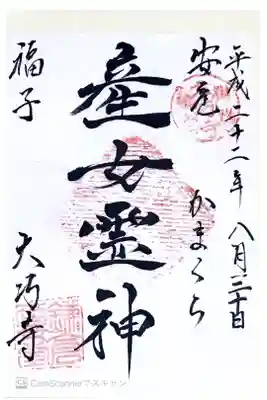 平成二十二年 八月三十日
安産 かまくら
産女霊神
福子 大巧寺
CamScannerでスキャン